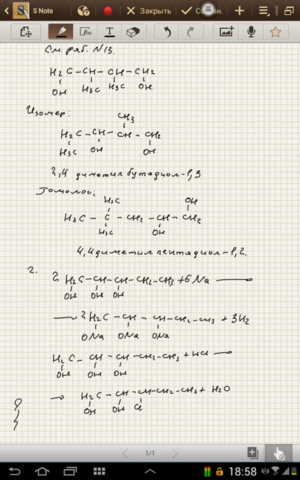 S Note
Закрыть
См. раб. N13.
H₂C – CH – CH – CH₂
OH H₃C H₃C OH
Изомер:
CH₃
H₂C – CH – CH – CH₂
H₃C OH OH
2,4 диметил бутадиол-1,3
Гомолог:
H₃C OH
H₃C – C – CH₂ – CH – CH₂
H₃C OH
4,4 диметил пентадиол-1,2.
2.
2 H₂C–CH–CH–CH₂–CH₃ + 6Na →
OH OH OH
→ 2 H₂C – CH – CH–CH₂–CH₃ + 3H₂
ONa ONa ONa
H₂C – CH – CH – CH₂–CH₃ + HCl →
OH OH OH
→ H₂C – CH – CH–CH₂–CH₃ + H₂O
OH OH Cl
1/1
18:58